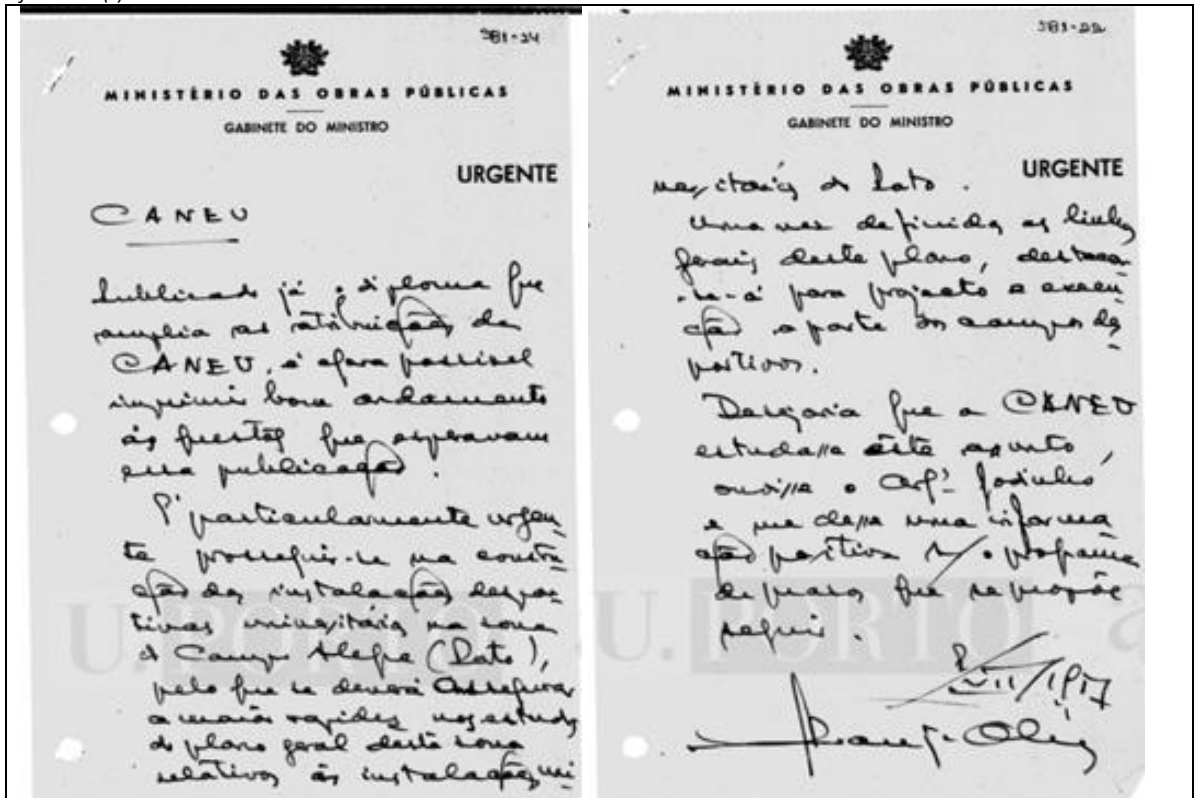 581-24
MINISTÉRIO DAS OBRAS PÚBLICAS
GABINETE DO MINISTRO
URGENTE
CANEU
Publicado já o diploma que
amplia as atribuições da
CANEU, é agora possível
imprimir bom andamento
às questões que esperavam
essa publicação.
É particularmente urgen-
te prosseguir-se na constru-
ção das instalações despor-
tivas universitárias na zona
do Campo Alegre (Pôrto),
pelo que se deverá assegurar
a maior rapidez nos estudos
do plano geral desta zona
relativos às instalações uni-
581-22
MINISTÉRIO DAS OBRAS PÚBLICAS
GABINETE DO MINISTRO
URGENTE
versitárias do Pôrto.
Uma vez definidas as linhas
gerais deste plano, destacar-
-se-á para projecto e execu-
ção a parte dos campos des-
portivos.
Desejaria que a CANEU
estudasse êste assunto,
ouvisse o Arqº Godinho
e me desse uma informa
ção positiva s/ o programa
de prazos que se propõe
seguir.
VII/1957
U.PORTO
U.PORTO